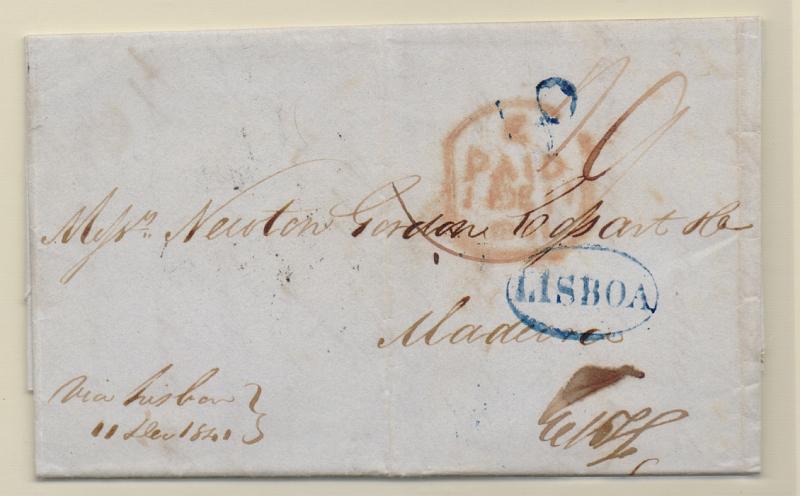 PAID
Messrs. Newton Gordon Cossart &Co
LISBOA
Madeira
Via Lisbon
11 Dec 1841